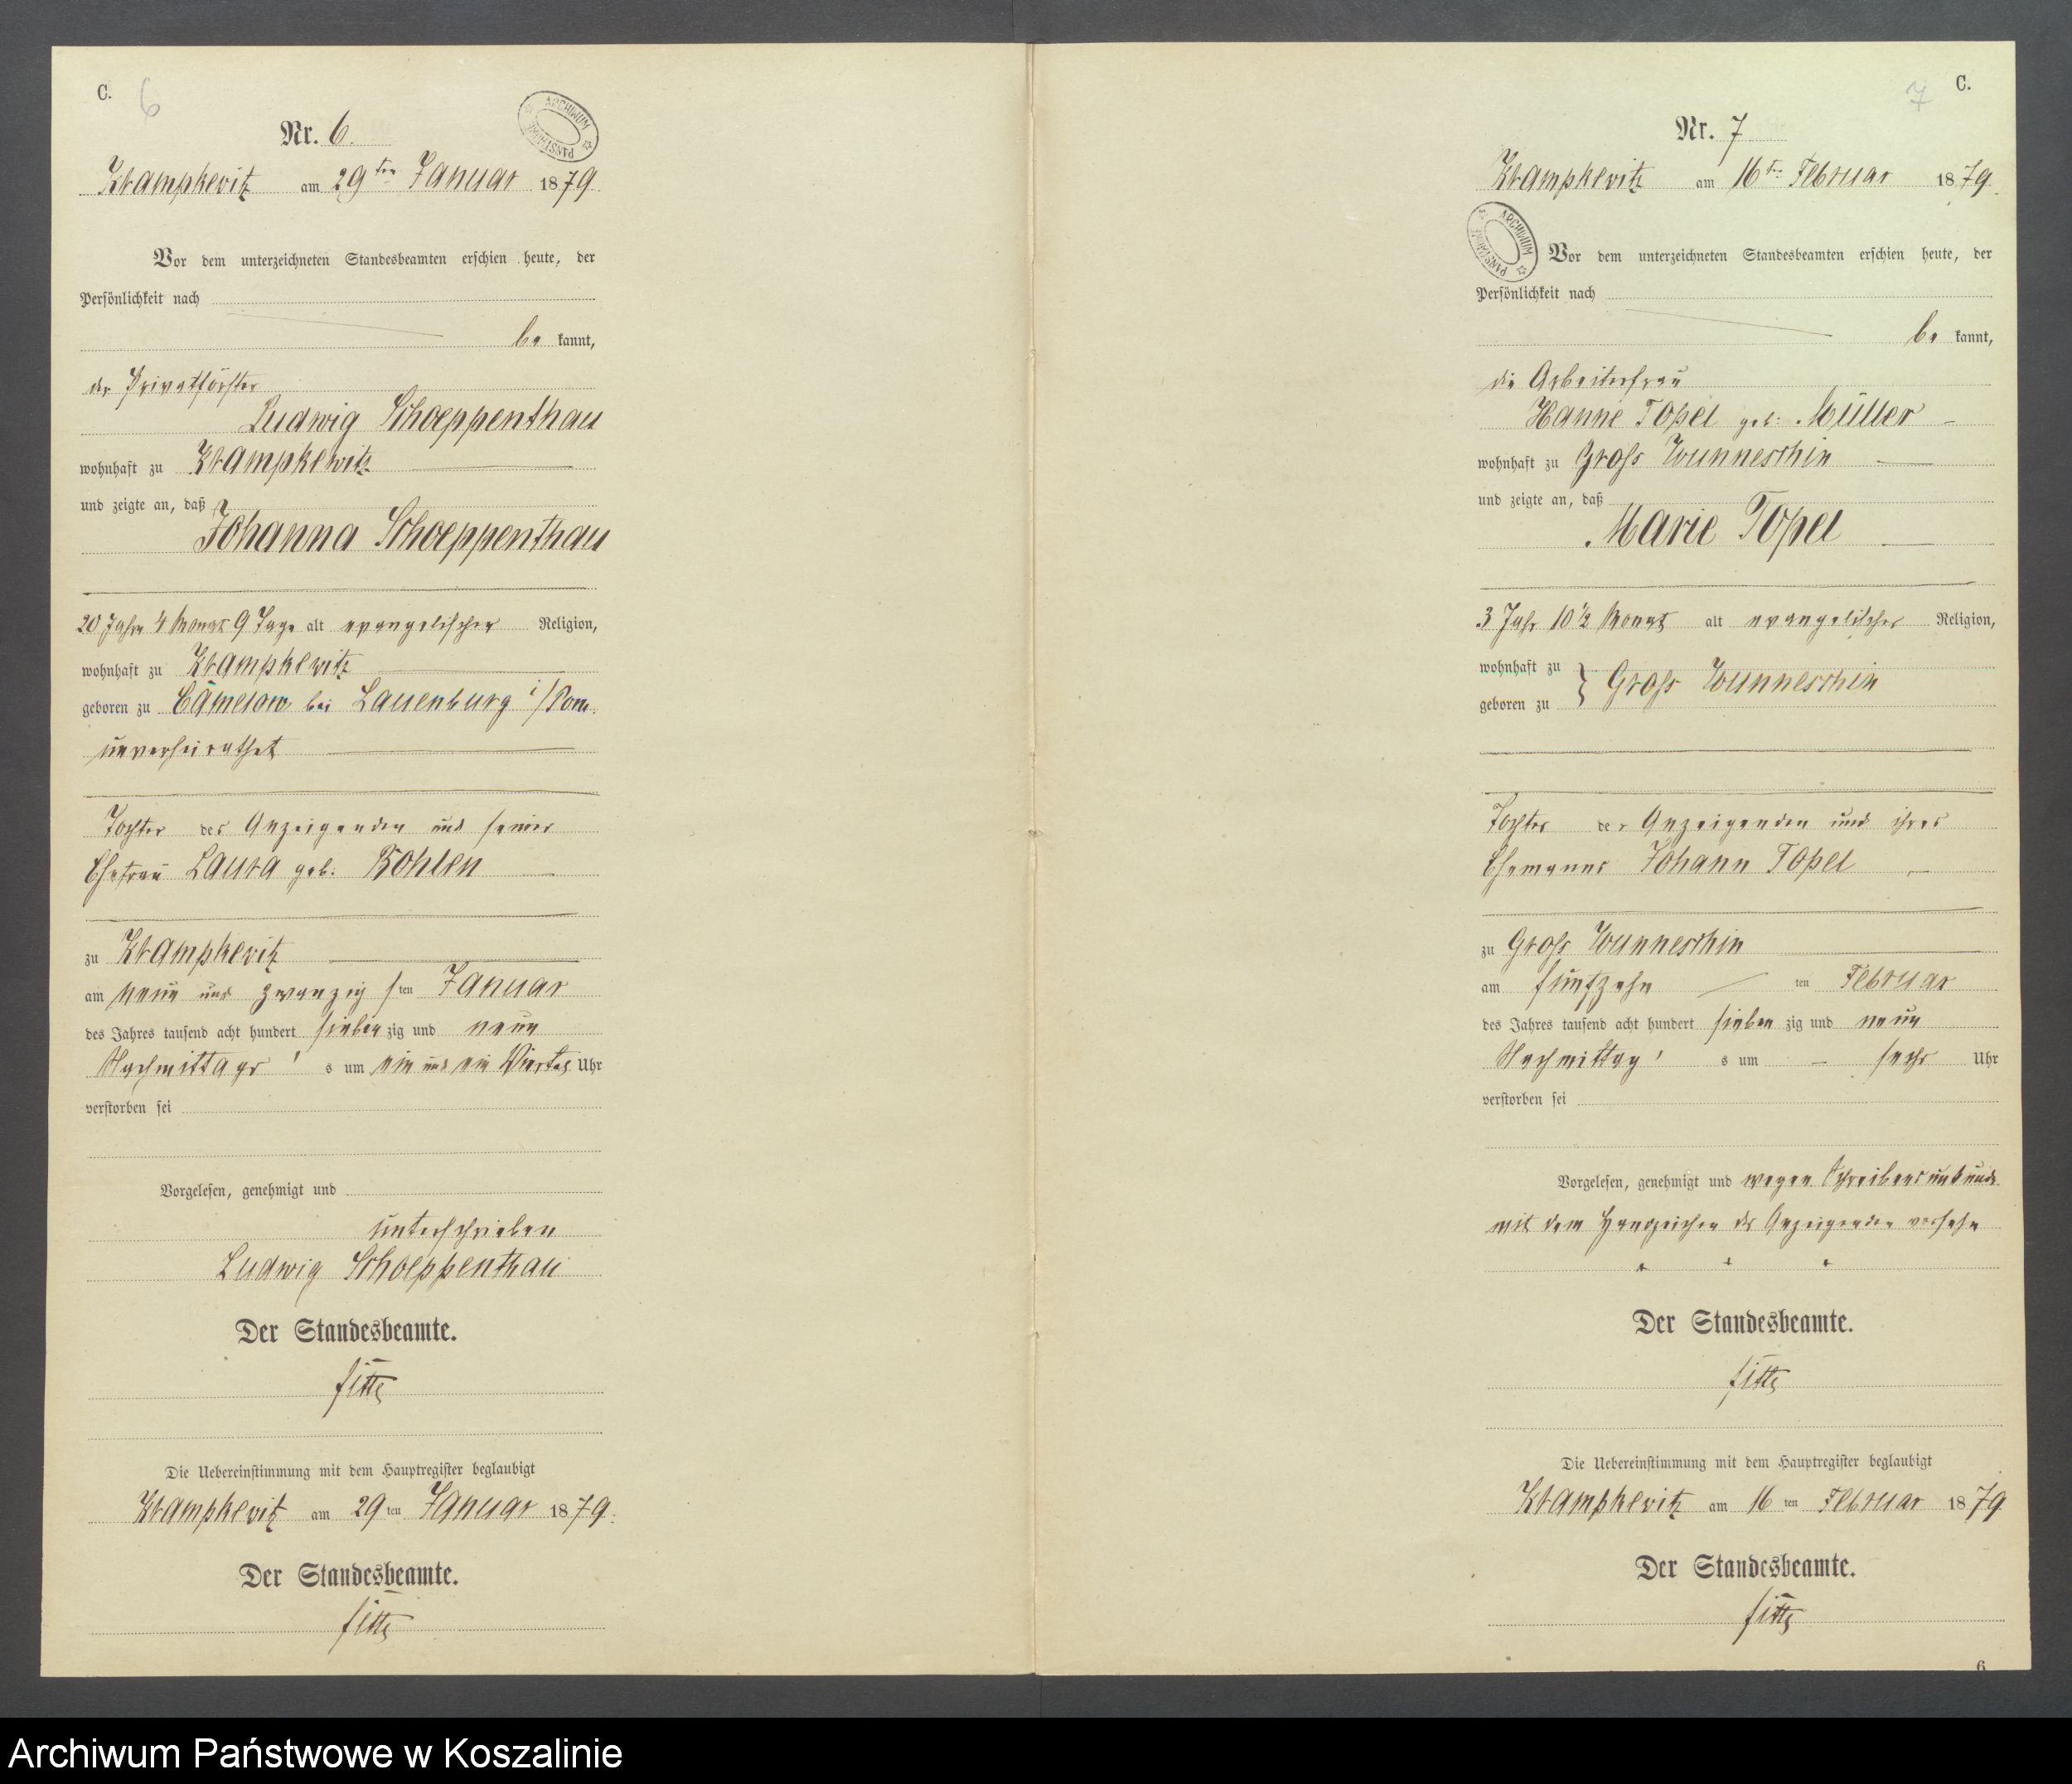 C. 6
Nr. 6.
Krampkewitz am 29ten Januar 1879.
Vor dem unterzeichneten Standesbeamten erschien heute, der
Persönlichkeit nach
be kannt,
der Privatförster
Ludwig Schoeppenthau
wohnhaft zu Krampkewitz
und zeigte an, daß
Johanna Schoeppenthau
20 Jahre 4 Monat 9 Tage alt evangelischer Religion,
wohnhaft zu Krampkewitz
geboren zu Camelow bei Lauenburg i/Pom.
unverheirathet
Tochter des Anzeigenden und seiner
Ehefrau Laura geb. Bohlen
zu Krampkewitz
am neun und zwanzig sten Januar
des Jahres tausend acht hundert sieben zig und neun
Nachmittags s um ein und ein Viertel Uhr
verstorben sei
Vorgelesen, genehmigt und
unterschrieben
Ludwig Schoeppenthau
Der Standesbeamte.
Die Uebereinstimmung mit dem Hauptregister beglaubigt
Krampkewitz am 29ten Januar 1879.
Der Standesbeamte.
ARCHIWUM PAŃSTWOWE
7 C.
Nr. 7
Krampkewitz am 16ten Februar 1879.
ARCHIWUM PAŃSTWOWE
Vor dem unterzeichneten Standesbeamten erschien heute, der
Persönlichkeit nach
be kannt,
die Arbeiterfrau
Hanne Topel geb. Müller
wohnhaft zu Gross Wunneschin
und zeigte an, daß
Marie Topel
3 Jahr 10 1/2 Monat alt evangelischer Religion,
wohnhaft zu
geboren zu } Gross Wunneschin
Tochter der Anzeigenden und ihres
Ehemannes Johann Topel
zu Gross Wunneschin
am fünfzehn ten Februar
des Jahres tausend acht hundert sieben zig und neun
Nachmittag s um sechs Uhr
verstorben sei
Vorgelesen, genehmigt und wegen Schreibensunkunde
mit dem Handzeichen der Anzeigenden versehn
+ + +
Der Standesbeamte.
Die Uebereinstimmung mit dem Hauptregister beglaubigt
Krampkewitz am 16ten Februar 1879
Der Standesbeamte.
6
Archiwum Państwowe w Koszalinie